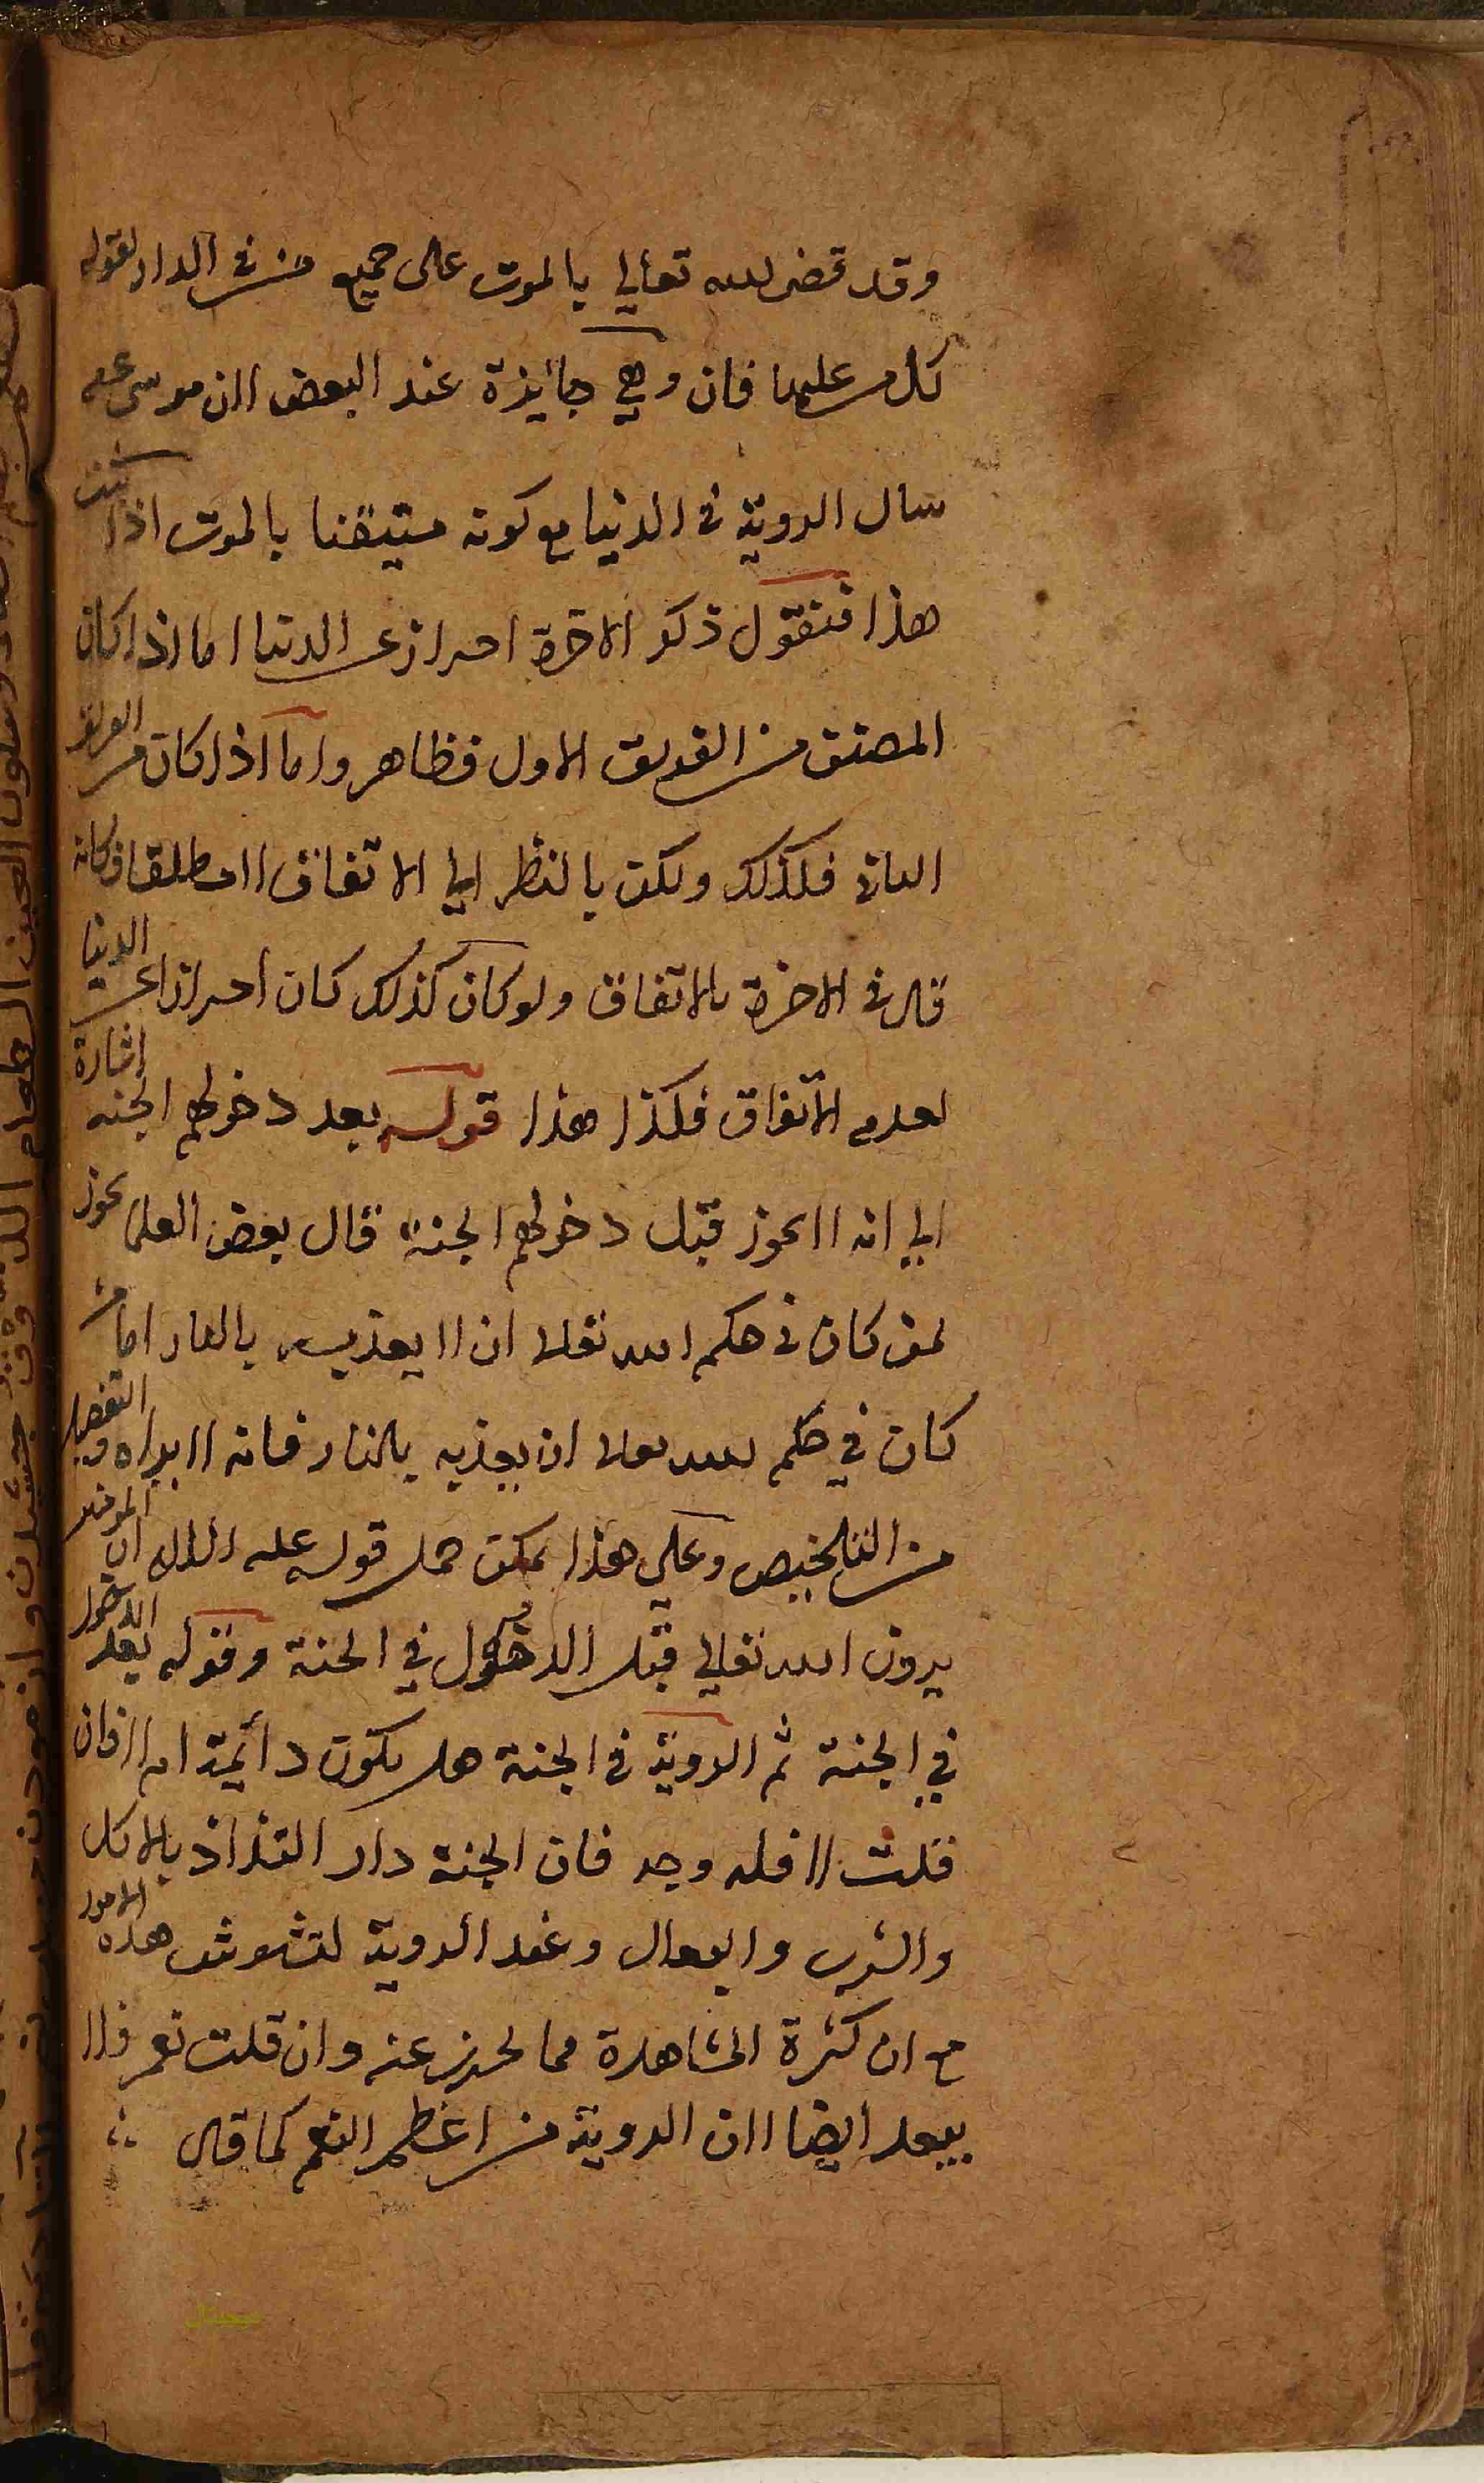 وقد قضى الله تعالى بالموت على جميع من في الدار لقوله
كل من عليها فان وهي جايزة عند البعض الان موسى عم
سال الروية في الدنيا مع كونه متيقنا بالموت اذا ثبت
هذا فنقول ذكر الاخرة احراز عن الدنيا اما اذا كان
المصنف من الفريق الاول فظاهر واما اذا كان من الفريق
الثاني فكذلك ولكن بالنظر الي الاتفاق الا مطلقا فكانه
قال في الاخرة بالاتفاق ولو كان كذلك كان احرازا عن الدنيا
لعدم الاتفاق فكذا هذا قوله بعد دخولهم الجنه اشارة
الي انه الا يجوز قبل دخولهم الجنة قال بعض العلما يجوز
لمن كان في حكم الله تعالى ان الا يعذبه بالنار اما من
كان في حكم الله تعالى ان يعذبه بالنار فانه الا يراه والتفصيل
من التلخيص وعلي هذا يمكن حمل قوله عليه السلام ان المومنين
يرون الله تعالي قبل الدخول في الجنة وقوله بعد الدخول
في الجنة ثم الروية في الجنة هل يكون دائمة ام الا فان
قلت الا فله وجه فان الجنة دار التذاذ بالاكل
والشرب والبعال وعند الروية لتشوش هذه الامور
مع ان كثرة المشاهدة مما يحرز عنه وان قلت نعم فلا
يبعد ايضا الان الروية من اعظم النعم كما قال